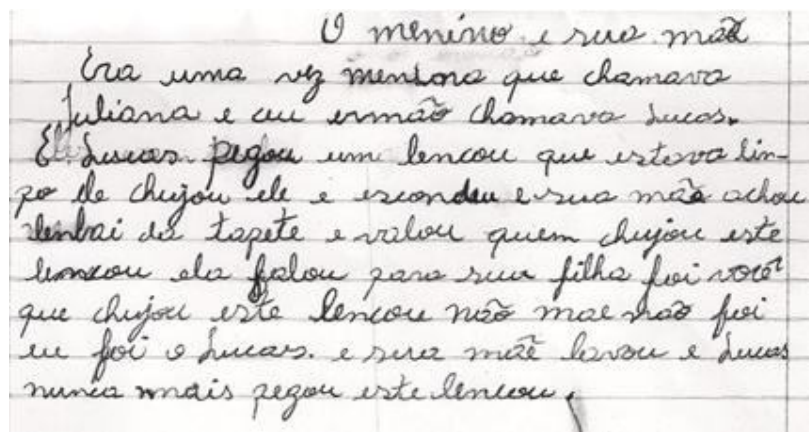 O menino e sua mãe
Era uma vez menina que chamava
Juliana e ceu ermão chamava Lucas.
E Lucas pegou um lencou que estava lin-
po ele chujou ele e escondeu e sua mãe achou
lenbai do tapete e valou quem chujou este
lencou ela falou para sua filha foi você
que chujou este lencou não mae não foi
eu foi o Lucas. e sua mãe lavou e Lucas
nunca mais pegou este lencou.